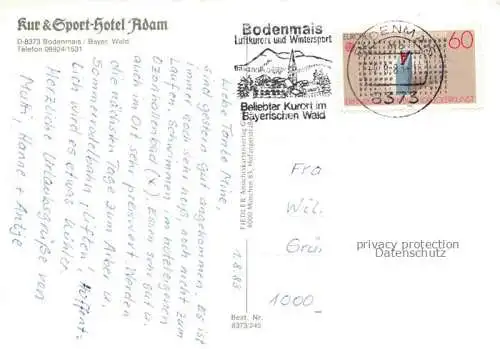 Kur & Sport-Hotel Adam
D-8373 Bodenmais / Bayer. Wald
Telefon 09924/1531
Liebe Tante Mine,
sind gestern gut angekommen. Es ist
immer noch sehr heiß auch nicht zum
Laufen. Schwimmen im hoteleigenen
Ozonhallenbad (x). Essen sehr gut u.
auch im Ort sehr preiswert. Werden
die nächsten Tage zum Arber u.
Sommerrodelbahn liften! Hoffent-
lich wird es etwas kühler.
Herzliche Urlaubsgrüße von
Mutti, Hanne + Antje
1.8.83
FIEDLER Ansichtskartenverlag
8000 München 83
Best. Nr.
8373/245
Bodenmais
Luftkurort und Wintersport
Beliebter Kurort im
Bayerischen Wald
BODENMAIS
8373
EUROPA
60
DEUTSCHE BUNDESPOST
Fra
Wil
Grü
1000
privacy protection
Datenschutz